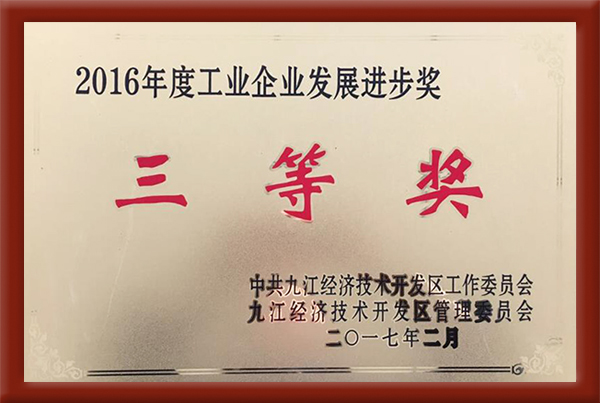 2016年度工业企业发展进步奖
三等奖
中共九江经济技术开发区工作委员会
九江经济技术开发区管理委员会
二〇一七年二月